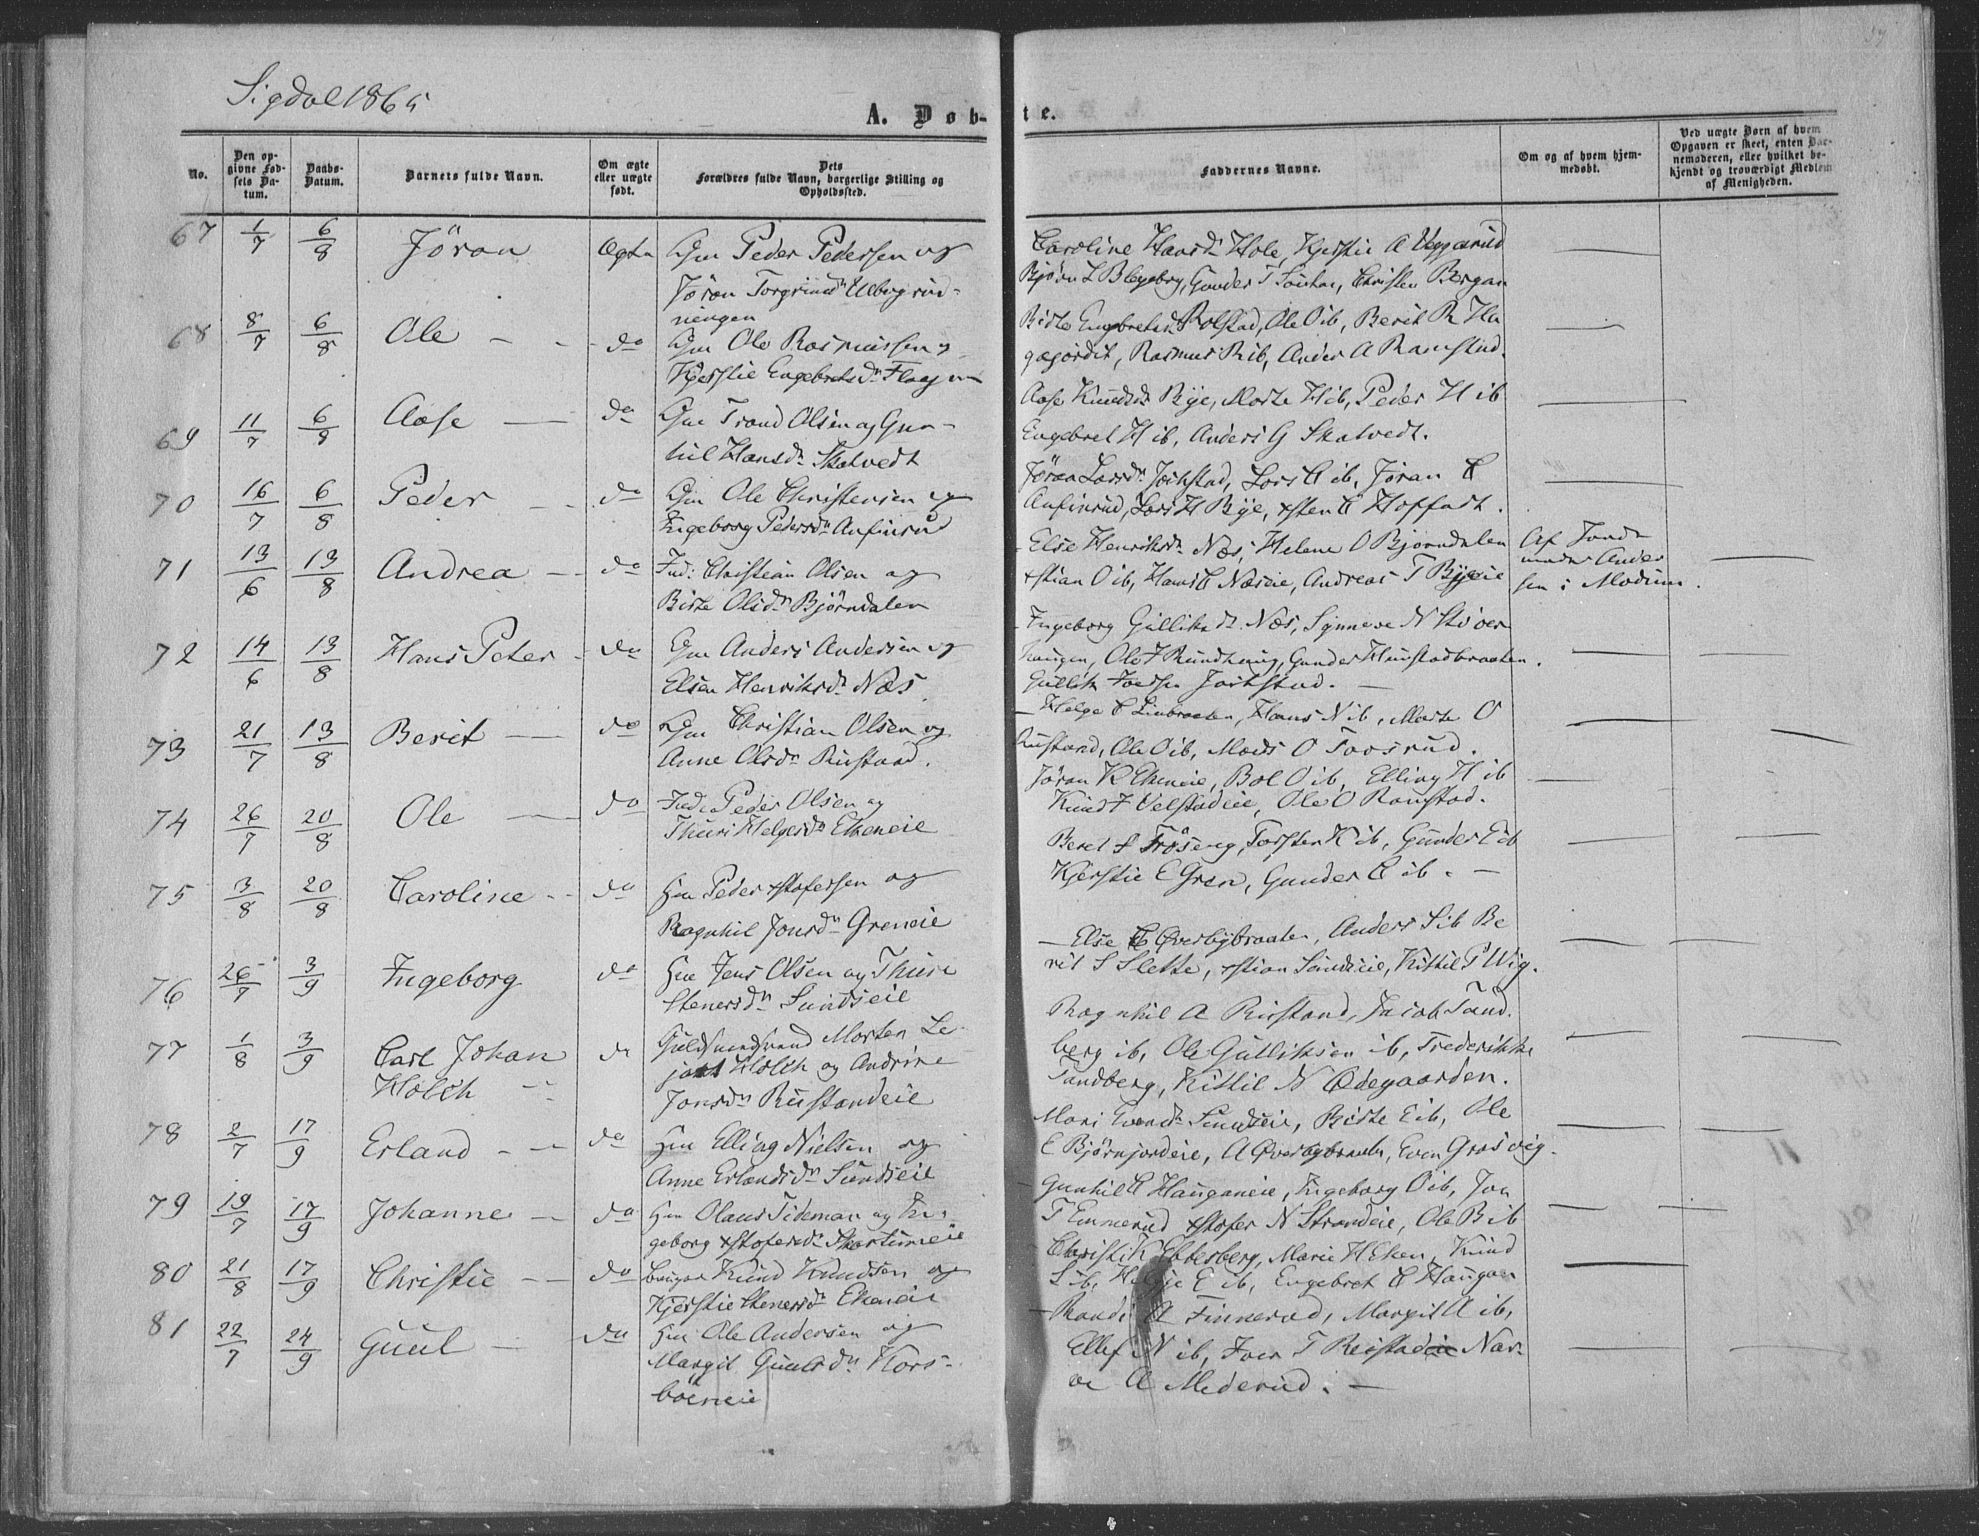 Sigdal 1865
A. Døb-
te.
No.
Den op-
givne Fød-
sels Da-
tum.
Daabs-
Datum.
Barnets fulde Navn.
Om ægte
eller uægte
født.
Dets
Forældres fulde Navn, borgerlige Stilling og
Opholdssted.
Faddernes Navne.
Om og af hvem hjem-
medøbt.
Ved uægte Børn af hvem
Opgaven er skeet, enten Bar-
nemoderen, eller hvilket be-
kjendt og troværdigt Medlem
af Menigheden.
67 1/7 6/8 Jöran Ægte Gm Peder Pedersen og
Jöran Torgrimsdr
ningen
Caroline Hansdr Hole, Kjerstie A Veggerud
Bjørn L Blegeberg, Gunder T, Christen Bergan
68 8/7 6/8 Ole do Gm Ole Rasmussen og
Kjerstie Engebretsdr
Birte Engebretsdr Rolstad, Ole O ib, Berit R Ha
gagjordet, Rasmus R ib, Anders A Ramstad.
69 11/7 6/8 Aase do Gm Trond Olsen og Gun-
hil Hansdr Skatvedt
Aase Knudsdr Bye, Marte H ib, Peder H ib
Engebret H ib, Anders G Skatvedt.
70 16/7 6/8 Peder do Gm Ole Christensen og
Ingeborg Pedersdr Anfinrud
Jöran Larsdr, Lars C ib, Jöran C
Anfinrud, Lars H Bye, xsten C Hoffart.
71 13/6 13/8 Andrea do Ind: Christian Olsen og
Birte Olsdr Bjørndalen
Else Henriksdr Næs, Helene O Bjørndalen
xstian O ib, Hans C Næseie, Andreas T Byeie
Af Jord-
moder Ander
sen i Modum.
72 14/6 13/8 Hans Peter do Gm Anders Andersen og
Elsen Henriksdr Næs
Ingeborg Gulliksdr Næs, Synneve N
haugen, Ole J Rundhaug, Gunder Hunstadbraaten.
Gullik
73 21/7 13/8 Berit do Gm Christian Olsen og
Anne Olsdr Rustand.
Helge C Linbraaten, Hans N ib, Marte O
Rustand, Ole O ib, Mads O Taasrud.
74 26/7 20/8 Ole do Ind. Peder Olsen og
Thuri Helgesdr Ekeneie
Jöran K Ekeneie, Bol O ib, Elling H ib
Knud F Velstadeie, Ole O Ramstad.
75 3/8 20/8 Caroline do Hm Peder xstofersen og
Ragnhil Jonsdr Greneie
Beret S Frøseng, Torsten K ib, Gunder E ib
Kjerstie E Gren, Gunder C ib.
76 26/7 3/9 Ingeborg do Hm Jens Olsen og Thure
Stenersdr Sundseie
Else C Øverbybraaten, Anders S ib Be
rit S Slette, xstian Sundseie, Kittil P Wig.
77 1/8 3/9 Carl Johan
Holch
Guldsmedsvend Morten Le
Holch og Andrine
Jonsdr Rustandeie
Ragnhil A Rustand, Jacob Sand.
berg ib, Ole Gulliksen ib, Frederikke
Sandberg, Kittil N Ødegaarden.
78 2/7 17/9 Erland do Hm Elling Nielsen og
Anne Erlandsdr Sundseie
Mari Evensdr Sundseie, Birte E ib, Ole
E Bjørnjordeie, A Øverbybraaten, Even Grosvig.
79 19/7 17/9 Johanne do Hm Olaus Tideman og In-
geborg xstofersdr
Gunhil C Hauganeie, Ingeborg O ib, Jon
T Emmerud xstofer N Strandeie, Ole B ib
80 21/8 17/9 Christie do Knud Knudsen og
Kjerstie Stenersdr Ekeneie
Christi K, Marie H Eken, Knud
S ib, Helge E ib, Engebret C Haugan
81 22/7 24/9 Guul do Hm Ole Andersen og
Margit Guulsdr Kors-
böeneie
Randi A Finnerud, Margit A ib,
Ellef N ib, Iver T Nar-
ve A Mederud.